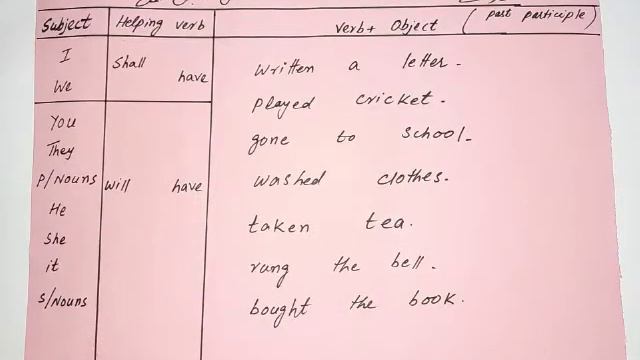 Subject Helping verb Verb+ Object (past participle)
I Shall have written a letter.
We played cricket.
You gone to school.
They
P/Nouns will have washed clothes.
He taken tea.
She
it rang the bell.
S/Nouns bought the book.